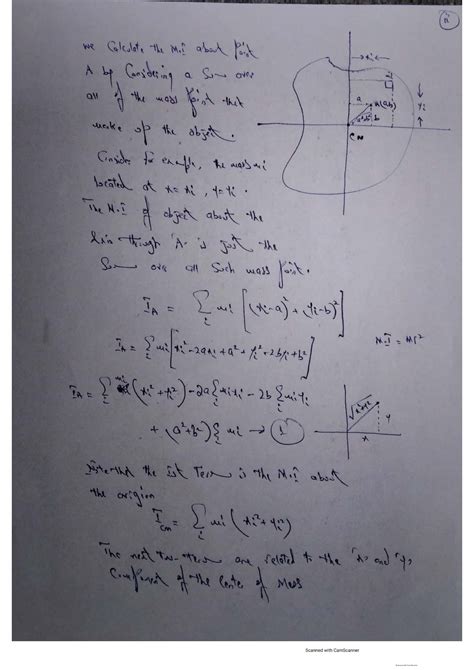 we Calculate the M.I about Point
A by Considering a Sum over
all of the mass Point that
make up the object.
Consider for example, the mass mi
located at x=xi, y=yi.
The M.I of object about the
Axis through 'A' is just the
Sum over all Such mass Point.
I_A = Σ_i mi [(xi-a)² + (yi-b)²]
I_A = Σ_i mi [xi² - 2axi + a² + yi² - 2byi + b²]
M.I = Mr²
I_A = Σ_i mi (xi² + yi²) - 2a Σ_i mixi - 2b Σ_i miyi
+ (a² + b²) Σ_i mi → 1
Note that the 1st Term is the M.I about
the origion
I_cm = Σ_i mi (xi² + yi²)
The next two term are related to the 'x' and 'y'
Component of the Center of Mass
xi
yi
a
A(a,b)
b
CM
y
x
Scanned with CamScanner